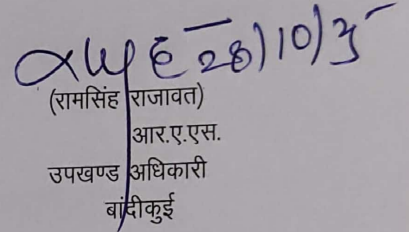 28/10/25
(रामसिंह राजावत)
आर.ए.एस.
उपखण्ड अधिकारी
बांदीकुई